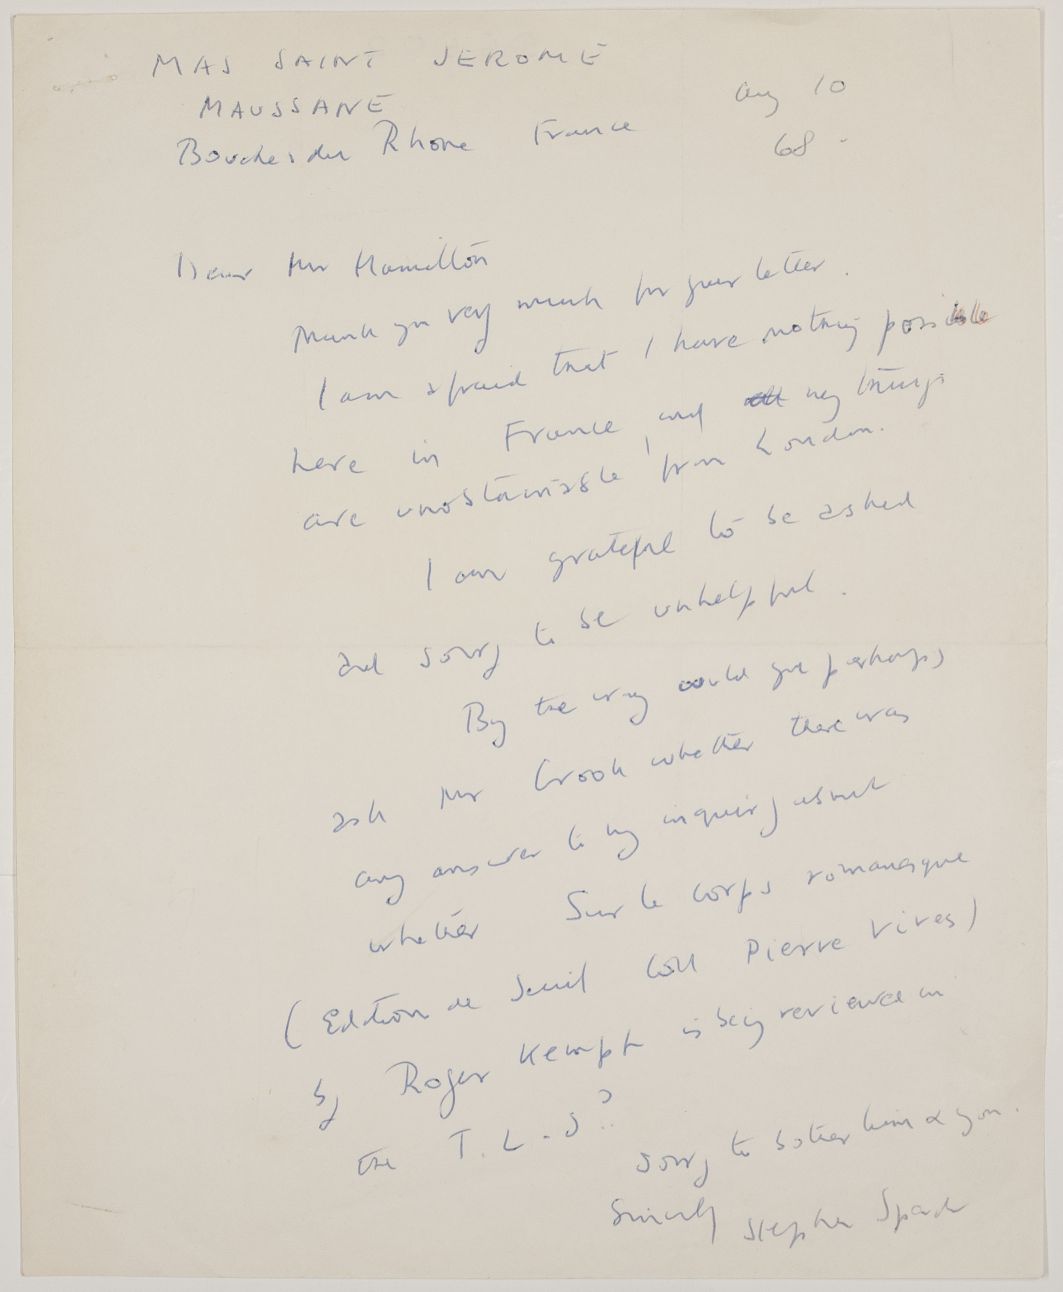 MAS SAINT JEROME
MAUSSANE
Bouches du Rhone France
Aug 10
68.
Dear Mr Hamilton
Thank you very much for your letter.
I am afraid that I have nothing possible
here in France, and my things
are unobtainable from London.
I am grateful to be asked
and sorry to be unhelpful.
By the way could you perhaps
ask Mr Crook whether there was
any answer to my inquiry about
whether Sur le corps romanesque
(Edition de Seuil Coll Pierre Vives)
by Roger Kempf is being reviewed in
the T.L.S?
Sorry to bother him & you.
Sincerely Stephen Spender